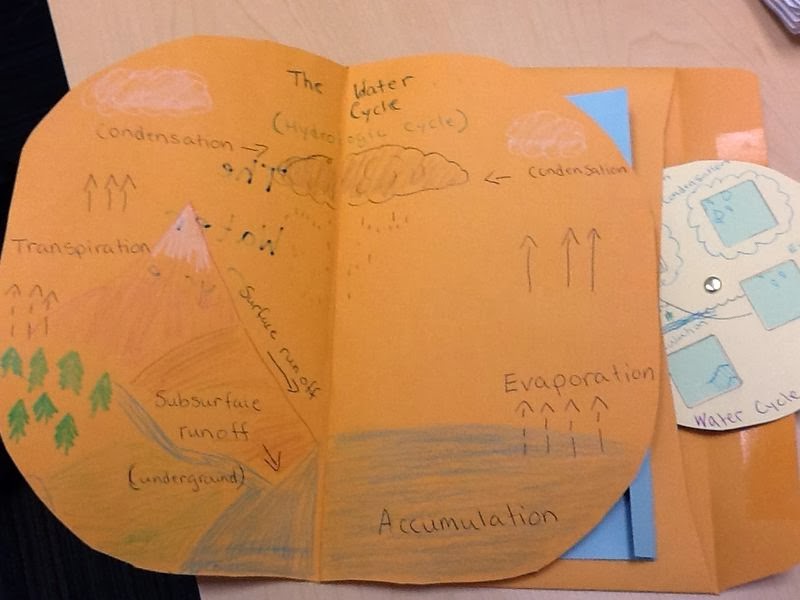 The Water
Cycle
(Hydrologic Cycle)
Condensation →
← Condensation
Transpiration
Surface runoff
Evaporation
Subsurface
runoff
(underground)
Accumulation
Water Cycle